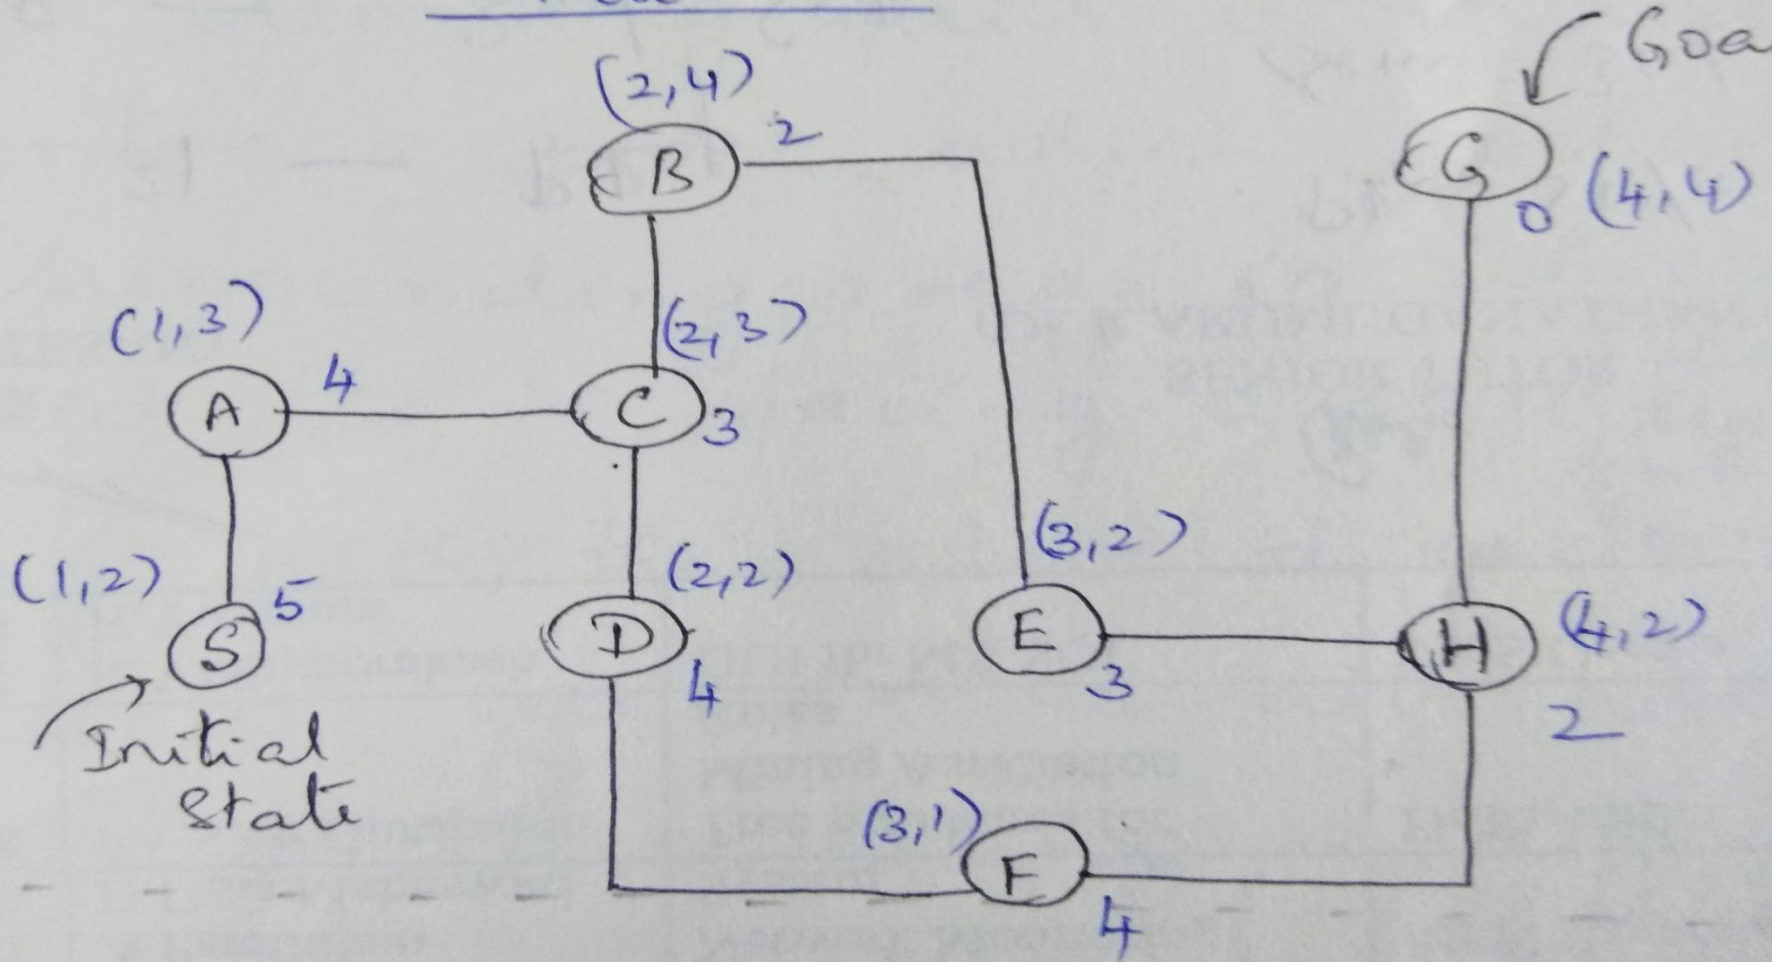 Goa
(2,4)
B 2
G
0 (4,4)
(1,3)
(2,3)
A 4
C 3
(1,2) 5
S
(2,2)
D
4
(3,2)
E
3
H (4,2)
2
Initial
State
(3,1)
F
4